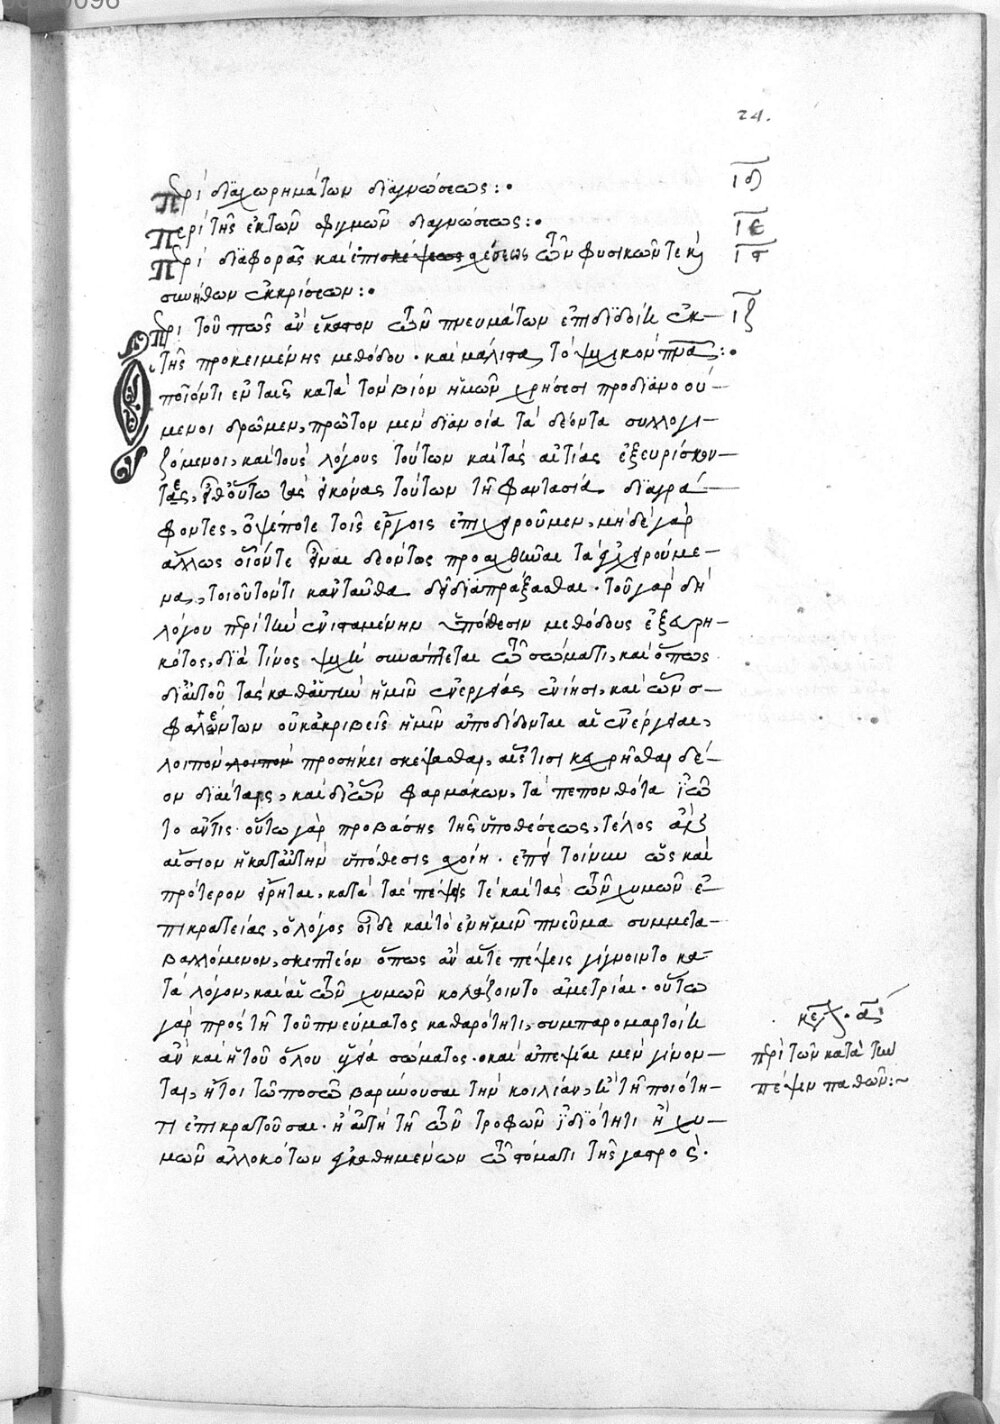 24.
Περὶ διαχωρημάτων διαγνώσεως:• ιδ
Περὶ τῆς ἐκ τῶν σφυγμῶν διαγνώσεως:• ιε
Περὶ διαφορᾶς καὶ ἐπισκέψεως τῶν φυσικῶν τε καὶ ιϛ
συνήθων ἐκκρίσεων:•
Περὶ τοῦ πῶς ἂν ἕκαστον τῶν πνευμάτων ἐπιδιδοίη ἐκ ιζ
τῆς προκειμένης μεθόδου· καὶ μάλιστα τὸ ψυχικὸν πνεῦμα:•
Ὁποῖόν τι ἐν ταῖς κατὰ τὸν βίον ἡμῶν χρήσεσι προδιανοού-
μενοι δρῶμεν, πρῶτον μὲν διανοία τὰ δέοντα συλλογι-
ζόμενοι, καὶ τοὺς λόγους τούτων καὶ τὰς αἰτίας ἐξευρίσκον-
τες, εἶθ' οὕτω τὰς εἰκόνας τούτων τῇ φαντασία διαγρά-
φοντες, ὀψέποτε τοῖς ἔργοις ἐπιχειροῦμεν, μηδὲ γὰρ
ἄλλως οἷόν τε εἶναι δεόντως προαχθῆναι τὰ ἐγχειρούμε-
να, τοιοῦτόν τι κἀνταῦθα δεῖ διαπράξασθαι. τοῦ γὰρ δὴ
λόγου περὶ τὴν ἐνισταμένην ὑπόθεσιν μεθόδους ἐξευρη-
κότος, διά τινος ψυχὴ συνάπτεται τῷ σώματι, καὶ ὅπως
δι' αὐτοῦ τὰς καθ' αὑτὴν ἡμῖν ἐνεργείας ἐνίησι, καὶ ὧν σ-
φαλέντων οὐκ ἀκριβεῖς ἡμῖν ἀποδίδονται αἱ ἐνέργειαι,
λοιπὸν λοιπὸν προσήκει σκέψασθαι, αἷς τισι κεχρῆσθαι δέ-
ον διαίταις, καὶ δι' ὧν φαρμάκων, τὰ πεπονθότα ἰῷ-
το ἄν τις· οὕτω γὰρ προβάσης τῆς ὑποθέσεως, τέλος ἂν
αἴσιον ἡ κατ' αὐτὴν ὑπόθεσις σχοίη. ἐπεὶ τοίνυν ὡς καὶ
πρότερον εἴρηται, κατὰ τὰς πέψεις τὲ καὶ τὰς τῶν χυμῶν ἐ-
πικρατείας, ὁ λόγος οἶδε καὶ τὸ ἐν ἡμῖν πνεῦμα συμμετα-
βαλλόμενον, σκεπτέον ὅπως ἂν αἵτε πέψεις γίγνοιντο κα-
τὰ λόγον, καὶ αἱ τῶν χυμῶν κολάζοιντο ἀμετρίαι. οὕτω
γὰρ πρὸς τῇ τοῦ πνεύματος καθαρότητι, συμπαρομαρτοίη
ἂν καὶ ἡ τοῦ ὅλου ὑγεία σώματος. καὶ ἀπεψίαι μὲν γίνον-
ται, ἤτοι τῷ ποσῷ βαρύνουσαι τὴν κοιλίαν, ἢ τῇ ποιότη-
τι ἐπικρατοῦσαι. ἢ αὐτῇ τῇ τῶν τροφῶν ἰδιότητι ἢ χυ-
μῶν ἀλλοκότων ἐγκαθημένων τῷ στόματι τῆς γαστρός.
κεφ. αʹ
περὶ τῶν κατὰ τὴν
πέψιν παθῶν:~